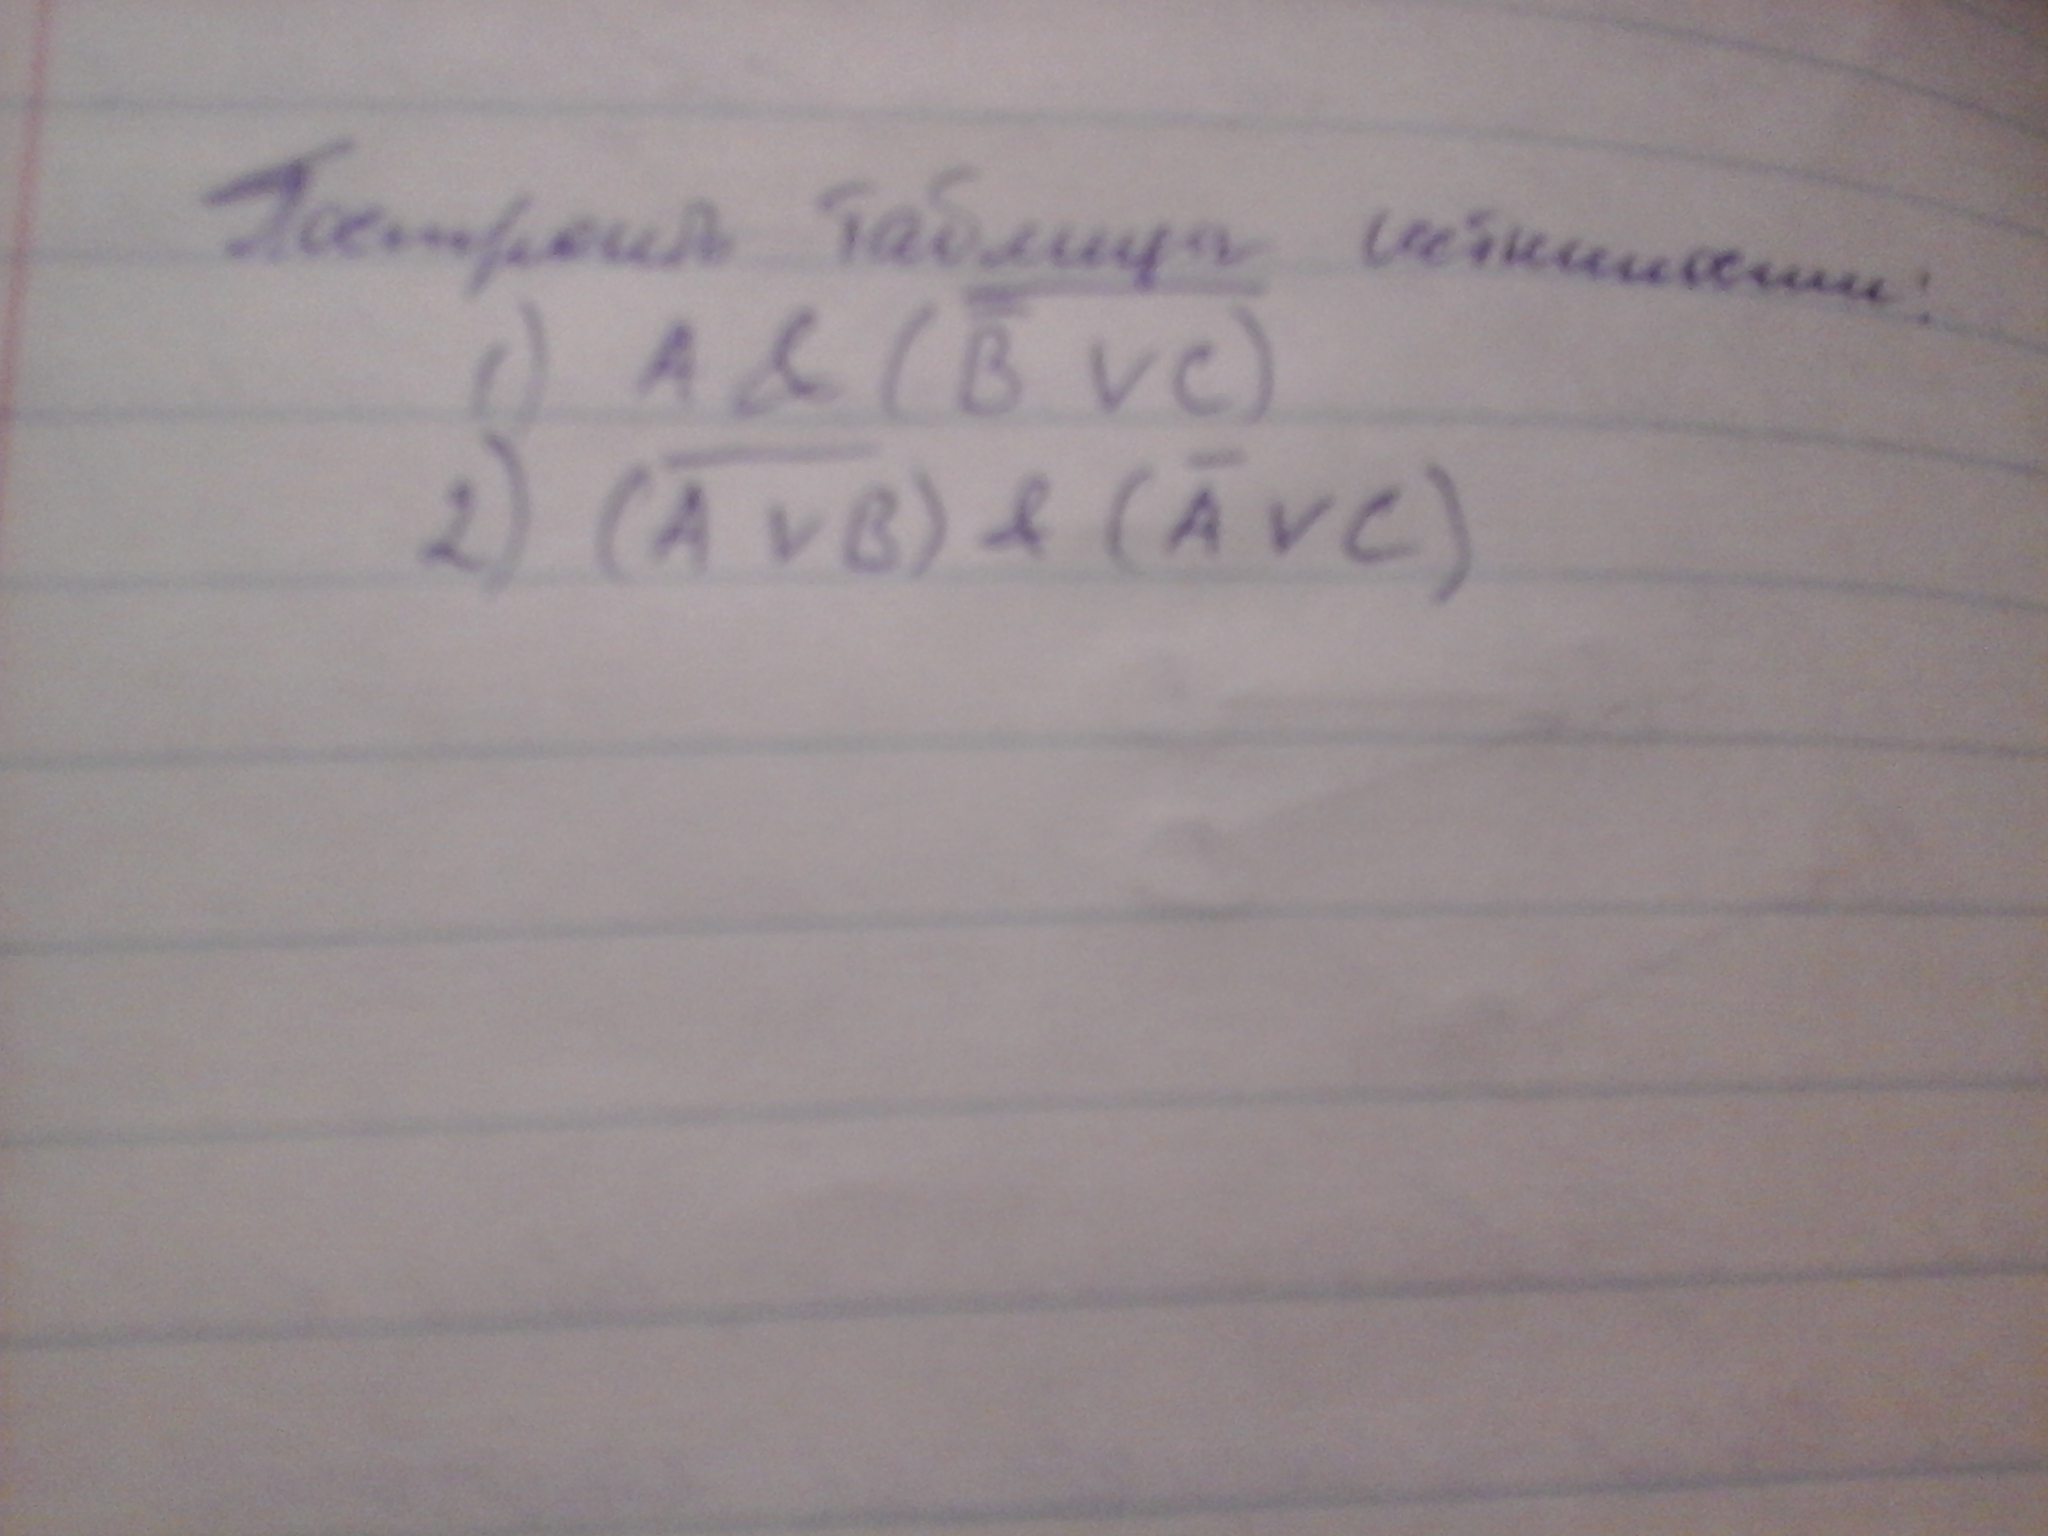 Построить таблицы истинности:
1) A & (\overline{\overline{B} ∨ C})
2) (\overline{A ∨ B}) & (\overline{A} ∨ C)